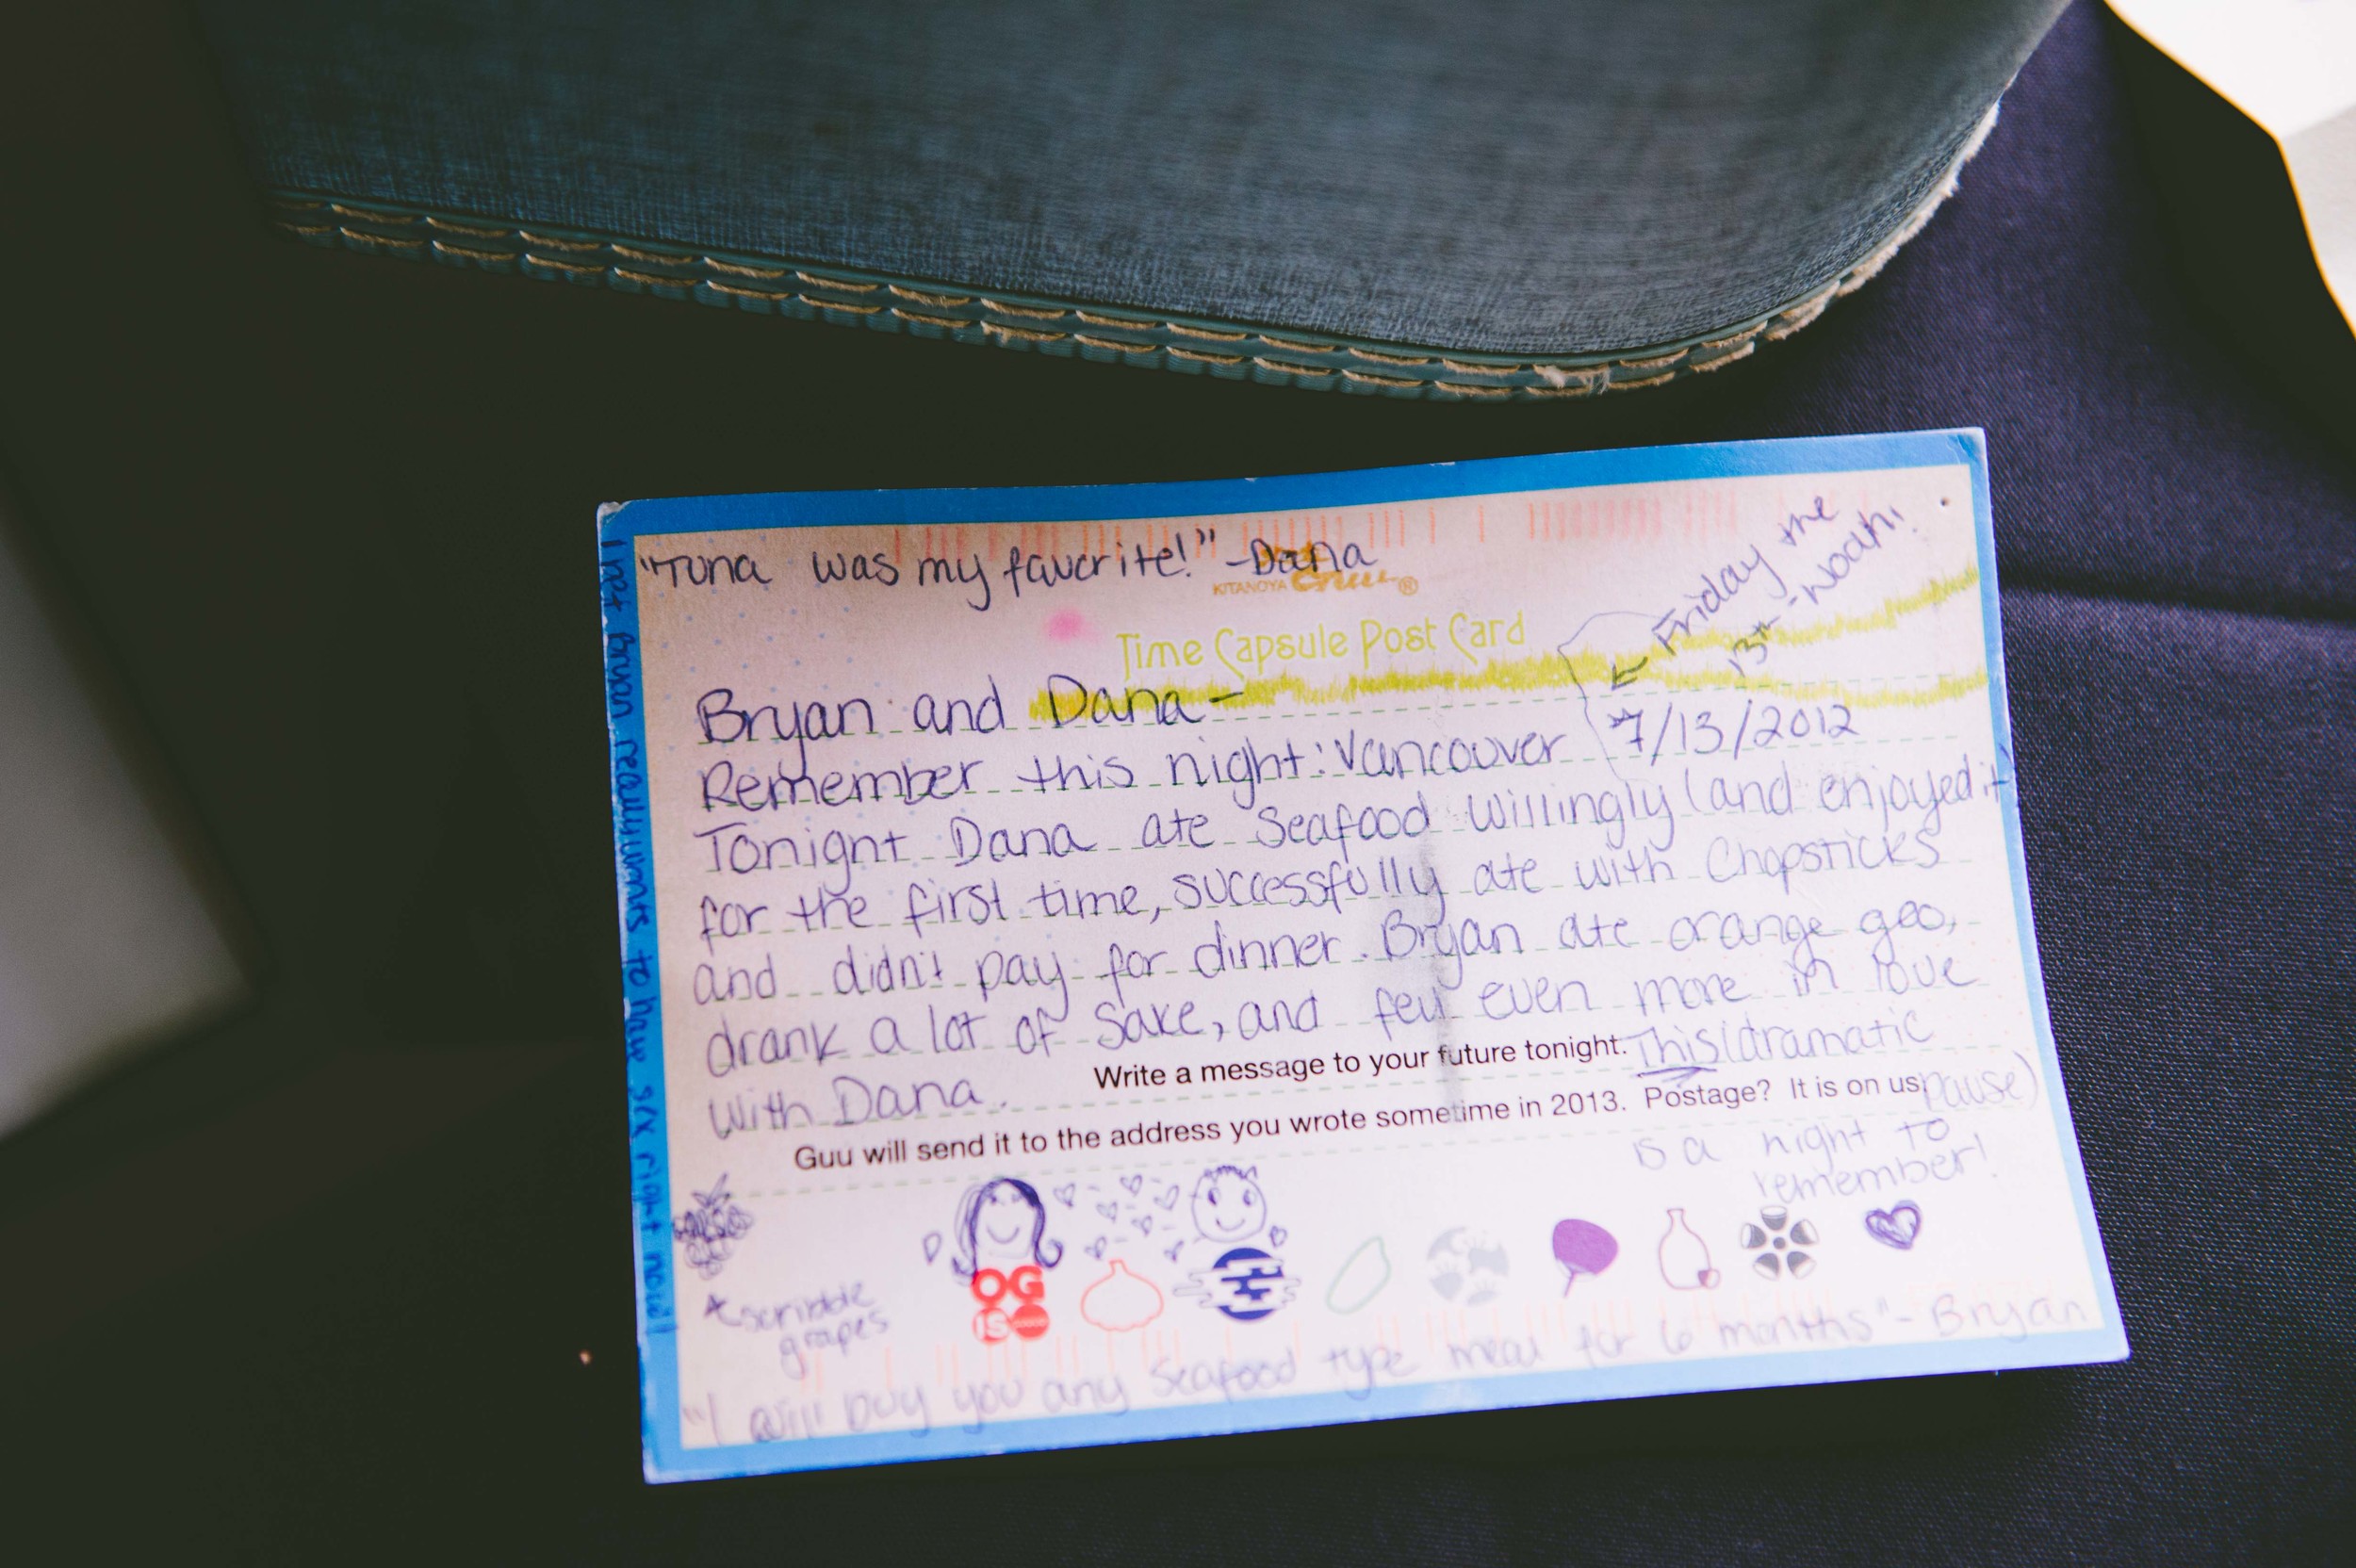 "Tuna was my favorite!" -Dana
KITANOYA Guu ®
Time Capsule Post Card
Friday the
13th - Woah!
Bryan and Dana -
Remember this night: Vancouver 7/13/2012
Tonight Dana ate Seafood willingly (and enjoyed it)
for the first time, successfully ate with Chopsticks
and didn't pay for dinner. Bryan ate orange goo,
drank a lot of Sake, and fell even more in love
with Dana.
Write a message to your future tonight.
Guu will send it to the address you wrote sometime in 2013. Postage? It is on us
This (dramatic
pause)
is a night to
remember!
OG
IS
scribble
grapes
"I will buy you any Seafood type meal for 6 months" - Bryan
I bet Bryan really wants to have sex right now!